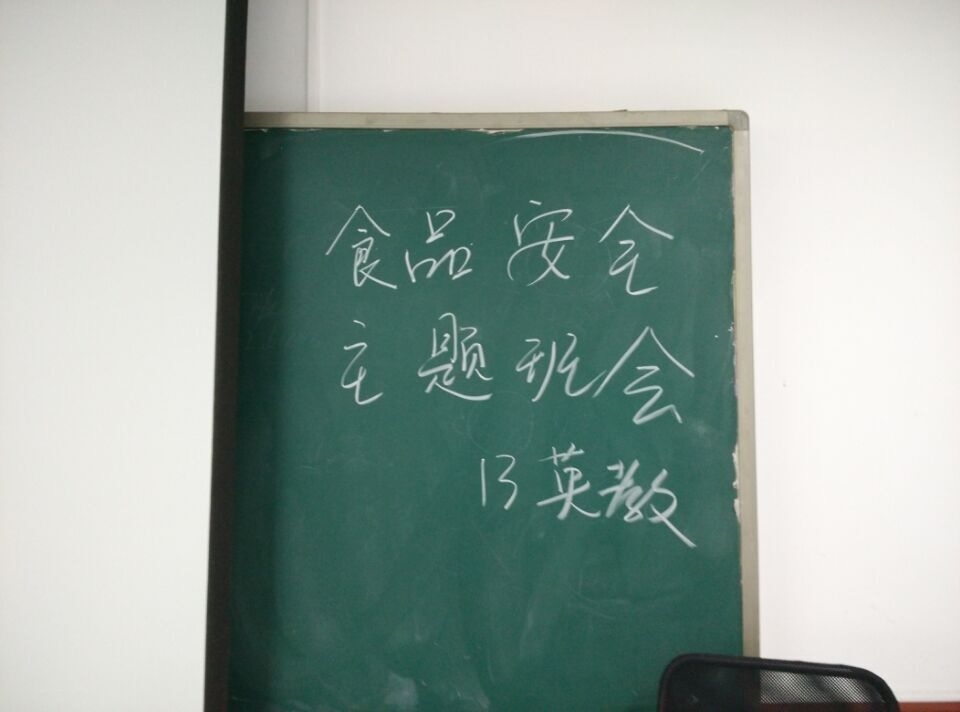 食品安全
主题班会
13英教